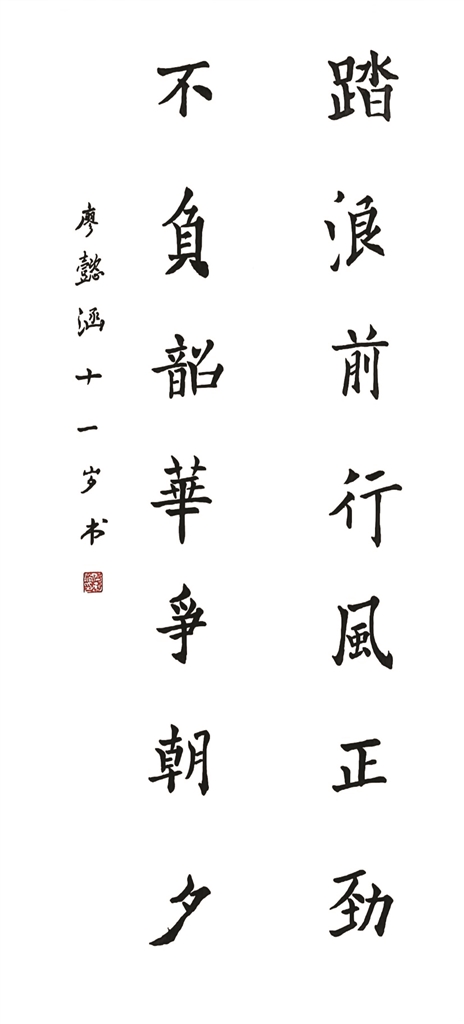 踏浪前行風正勁
不負韶華爭朝夕
廖懿涵十一岁书